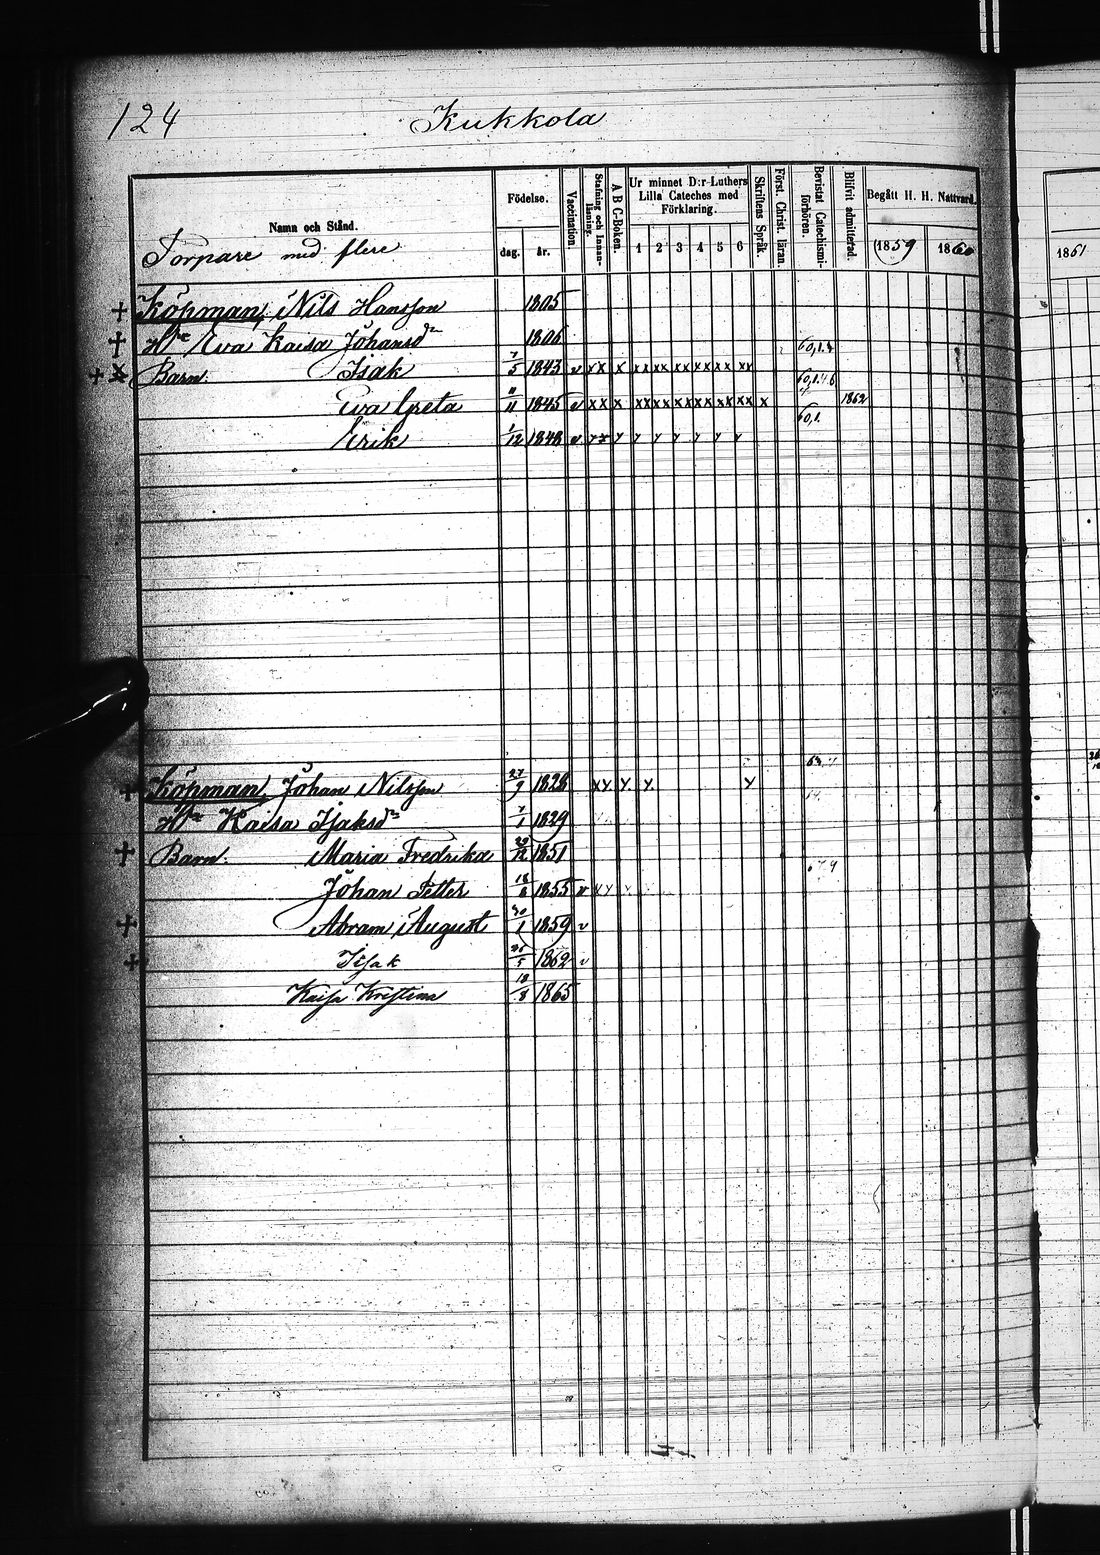 124 Kukkola
Namn och Stånd.
Torpare med flere
Födelse.
dag. år.
Vaccination.
Stafning och Innan-läsning.
A B C-Boken.
Ur minnet D:r Luthers
Lilla Cateches med
Förklaring.
1 2 3 4 5 6
Skriftens Språk.
Först. Christ. läran.
Bevistat Catechismi-förhören.
Blifvit admitterad.
Begått H. H. Nattvard.
1859 1860
1861
+ Köpman, Nils Hansson 1805
+ H:u Eva Kaisa Johansd:r 1806
60,1.
+ Barn: Isak 7/5 1843 v xx x xx xx xx xx xx xx
60,1.
Eva Greta 11/11 1845 v xx x xx xx xx xx xx xx x 1862
60,1.
Erik 1/12 1848 v
+ Köpman Johan Nilsson 27/9 1828
H:u Kaisa Isaksd:r 7/1 1829
+ Barn: Maria Fredrika 1851
Johan Petter 18/8 1855
+ Abram August 30/1 1859 v
+ Isak 1862 v
Kaisa Kristina 18/8 1865